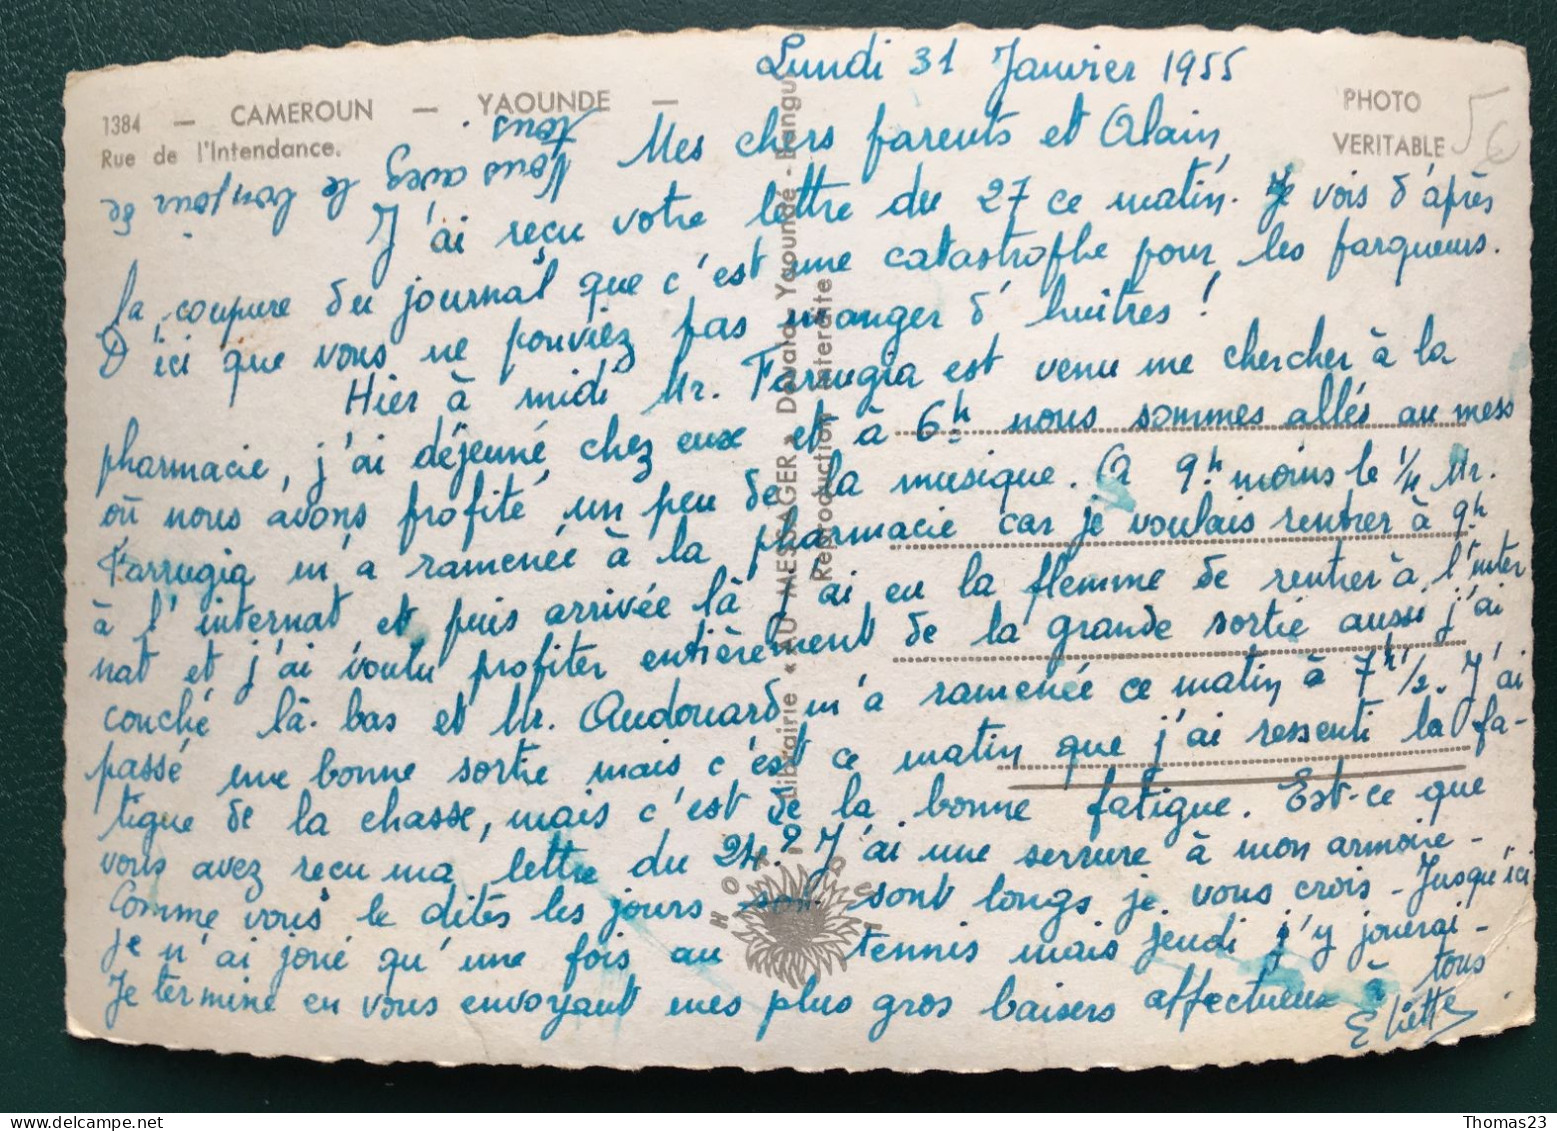 Lundi 31 Janvier 1955
1384 — CAMEROUN — YAOUNDE —
Rue de l'Intendance.
PHOTO
VERITABLE
Vous avez le bonjour de
tous.
Mes chers parents et Alain,
J'ai reçu votre lettre du 27 ce matin. Je vois d'après
la coupure du journal que c'est une catastrophe pour les parqueurs.
D'ici que vous ne pouviez pas manger d'huitres !
Hier à midi Mr. Farrugia est venu me chercher à la
pharmacie, j'ai déjeuné chez eux et à 6h nous sommes allés au mess
où nous avons profité un peu de la musique. A 9h moins le 1/4 Mr.
Farrugia m'a ramenée à la pharmacie car je voulais rentrer à 9h
à l'internat et puis arrivée là j'ai eu la flemme de rentrer à l'inter
nat et j'ai voulu profiter entièrement de la grande sortie aussi j'ai
couché là-bas et Mr. Audouard m'a ramenée ce matin à 7h 1/2. J'ai
passé une bonne sortie mais c'est ce matin que j'ai ressenti la fa-
tigue de la chasse, mais c'est de la bonne fatigue. Est-ce que
vous avez reçu ma lettre du 24 ? J'ai une serrure à mon armoire -
Comme vous le dites les jours sont longs je vous crois - Jusqu'ici
je n'ai joué qu'une fois au tennis mais jeudi j'y jouerai -
Je termine en vous envoyant mes plus gros baisers affectueux à tous
Eliette
Librairie « AU MESSAGER » Douala - Yaoundé - Bangui
Reproduction Interdite
HOA-QUI
Thomas23